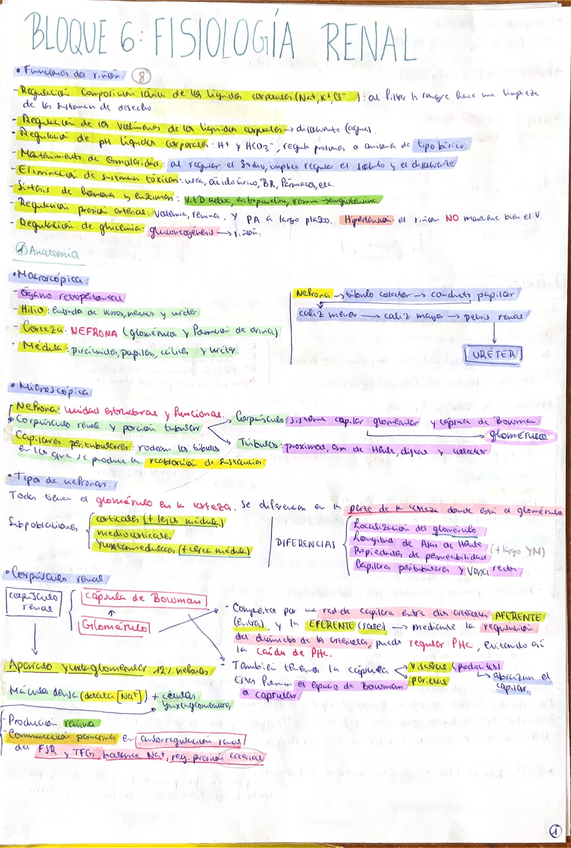 BLOQUE 6: FISIOLOGÍA RENAL
• Funciones del riñón (8)
- Regulación composición iónica de los líquidos corporales (Na+, K+, Cl-...): al filtrar la sangre hace una limpieza
de los sistemas de desecho
- Regulación de los volúmenes de los líquidos corporales → disolvente (agua).
- Regulación de pH líquidos corporales: H+ y HCO3-, regula protones a través de tipo básico.
- Mantenimiento de osmolaridad: al regular el Sodio, implica regular el soluto y el disolvente
- Eliminación de sustancias tóxicas: urea, ácido úrico, BR, fármacos, etc.
- Síntesis de hormonas y enzimas: Vit D activa, eritropoyetina, renina → angiotensina
- Regulación presión arterial: volemia, renina. Y PA a largo plazo. Hipertensión el riñón NO mantiene bien el V.
- Regulación de glucemia: gluconeogénesis → riñón.
① Anatomía
• Macroscópica:
- Órgano retroperitoneal
- Hilio: entrada de vasos, nervios y uréter
- Corteza: NEFRONA (glomérulos y formación de orina)
- Médula: pirámides, papilas, cálices y uréter.
Nefrona → túbulo colector → conducto papilar
cáliz menor → cáliz mayor → pelvis renal
URETER
• Microscópica
Nefrona: unidad estructural y funcional.
• Corpúsculo renal y porción tubular
Corpúsculo: sistema capilar glomerular y cápsula de Bowman
glomérulo
Túbulos: proximal, asa de Henle, distal y colector
Capilares peritubulares: rodean los túbulos
en los que se produce la reabsorción de sustancias
• Tipos de nefronas.
Todas tienen el glomérulo en la corteza. Se diferencian en la parte de la corteza donde está el glomérulo
Subpoblaciones
corticales (+ lejos médula)
mediocorticales
yuxtamedulares (+ cerca médula)
DIFERENCIAS
Localización del glomérulo
Longitud de Asa de Henle
Propiedades de permeabilidad (+ largo YM)
Capilares peritubulares y Vasa recta
• Corpúsculo renal
corpúsculo renal
cápsula de Bowman
↑
Glomérulo
• Compuesta por una red de capilares entre dos arteriolas AFERENTE
(entra), y la EFERENTE (sale) → mediante la regulación
del diámetro de la arteriolas, puede regular PHc, evitando así
la caída de PHc.
• También tiene la cápsula
visceral (podocitos) → abrazan el capilar.
parietal
Estas forman el espacio de Bowman
o capsular
Aparato yuxtaglomerular 12% nefronas
Mácula densa (detecta [Na+]) + células
yuxtaglomerulares
- Producción renina
- Comunicación paracrina en autorregulación renal
del FSR, TFG, balance Na+, reg. presión arterial
1